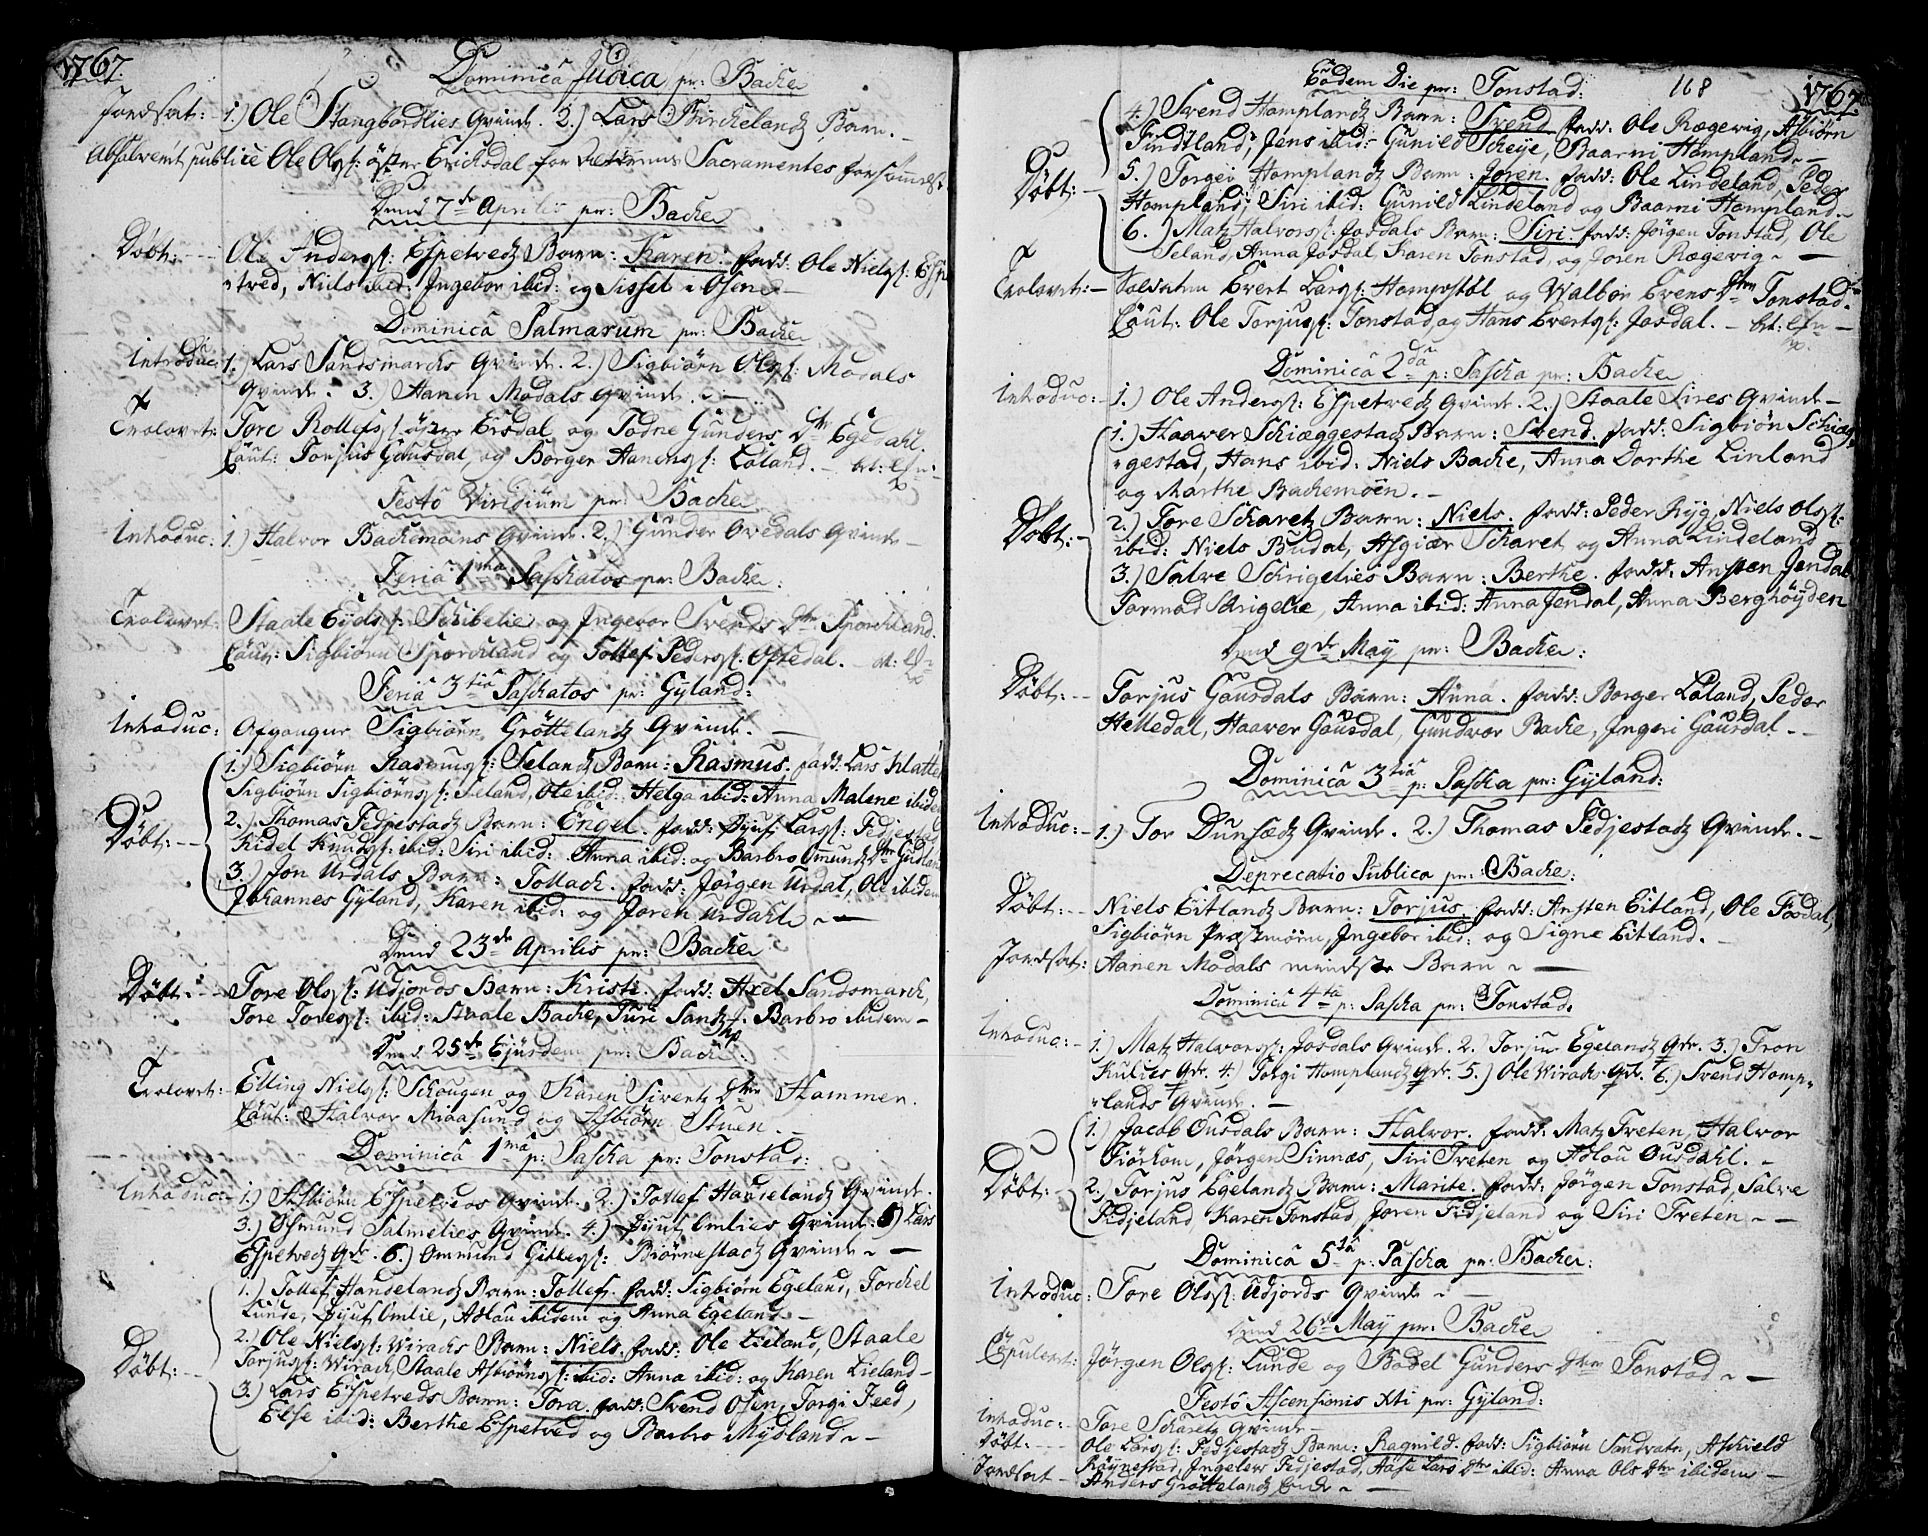 1767.
Dominica Judica pr: Backe
Jordsat: 1.) Ole Stangbordlies Qvinde. 2.) Lars Birckelandz Barn.
Absolveret publice Ole Ols: öfter Ericksdal for Sacramentes forsömelse
Dend 7de Aprilis pr: Backe
Döbt: Ole Anders: Espetvedz Barn: Karen. fadd: Ole Niels: Espe
tved, Niels ibid: Ingebor ibid: og Sissel Osen
Dominica Palmarum pr: Backe
Introduc: 1.) Lars Sandsmarcks Qvinde. 2.) Sigbiörn Ols: Modals
Qvinde. 3.) Aanen Modals Qvinde.
Trolovet: Tore Rollefs: öfter Ersdal og Todne Gunders Dtr Egedahl.
Caut: Torjus Gausdal, og Borger Aanens: Løland.
Festo Viridium pr: Backe
Introduc: 1.) Halvor Backemoens Qvinde. 2.) Gunder Ovedals Qvinde
Feria 1ma Paschatos pr: Backe:
Trolovet: Staale Eids: Schibelie og Ingebor Svends Dtr Sporckland.
Caut: Sigbiörn Sporckland og Tollef Peders: Oftedal.
Feria 3tia Paschatos pr: Gyland:
Introduc: Afgangne Sigbiörn Gröttelandz Qvinde.
1.) Sigbiörn Rasmus: Selandz Barn: Rasmus. fadd: Lars Klatte
Sigbiörn Sigbiörns: Seland, Ole ibid: Helga ibid: Anna Malene ibidem
2.) Thomas Fedjestadz Barn: Engel. fadd: Siuf Lars: Fedjestad
Döbt: Kidel Knuds: ibid: Siri ibid: Anna ibid: og Barbro Omundz Dtr Gudland
3.) Jon Urdals Barn: Tollach. fadd: Jørgen Urdal, Ole ibidem
Johannes Gyland, Karen ibid: og Joren Urdahl
Dend 23de Aprilis pr: Backe
Döbt: Tore Ols: Udjords Barn: Kristi. fadd: Axel Sandsmarck,
Tore Tores: ibid: Staale Backe, Turi Santz. Barbro ibidem
Dend 25de Ejusdem pr: Backe:
Trolovet: Elling Niels: Schougen og Karen Sivertz Dtr Hammer.
Caut: Halvor Miaasund og Asbiörn Stuen.
Dominica 1ma p: Pascha pr: Tonstad:
Introduc: 1.) Asbiörn Espetveds Qvinde. 2.) Tollef Hauselandz Qvinde.
3.) Osmund Salmelies Qvinde. 4.) Siuf Omlies Qvinde. 5) Lars
Espetvedz Qde. 6.) Ommund Gittes: Biörnestadz Qvinde
1.) Tollef Handelandz Barn: Tollef. fadd: Sigbiörn Egeland, Torckel
Lunde, Siuf Omlie, Adlau ibidem og Anna Egeland
2.) Ole Niels: Wirachs Barn: Niels. fadd: Ole Lieland, Staale
Döbt: Torjus: Wirach, Staale Asbiörns: ibid: Anna ibid: og Karen Lieland
3.) Lars Espetveds Barn: Tora. fadd: Svend Osen, Torgi Feed,
Else ibid: Berthe Espetved og Barbro Mydland
Eodem Die pr: Tonstad: 168 1767.
4.) Svend Homplandz Barn: Svend. fadd: Ole Rægevig, Asbiörn
Sindtland, Jens ibid: Gunild Scheije, Baarni Hompland
5.) Torgei Homplandz Barn: Joren. fadd: Ole Lindeland, Peder
Döbt: Hompland, Siri ibid: Gunild Lindeland og Baarni Hompland
6.) Matz Halvors: Josdals Barn: Siri. fadd: Jörgen Tonstad, Ole
Seland, Anna Josdal, Karen Tonstad, og Joren Rægevig
Trolovet: Soldaten Evert Lars: Hompstöl og Walbor Evens Dtr Tonstad.
Caut: Ole Torjus: Tonstad og Hans Everts: Josdal.
Dominica 2da p: Pascha pr: Backe
Introduc: 1.) Ole Anders: Espetvedz Qvinde. 2.) Staale Sires Qvinde
1.) Haaver Schiæggestadz Barn: Svend. fadd: Sigbiön Schiæg
gestad, Hans ibid: Niels Backe, Anna Dorthe Linland
og Marthe Backemoen.
Döbt: 2.) Tore Scharetz Barn: Niels. fadd: Peder Ryg, Niels Ols:
ibid: Niels Budal, Asgiær Scharet og Anna Lindeland
3.) Salve Schrigelies Barn: Berthe. fadd: Ansten Jendal
Tormod Schrigelie, Anna ibid: Anna Jendal, Anna Berghöyden
Dend 9de May pr: Backe:
Döbt: Torjus Gausdals Barn: Anna. fadd: Borger Løland, Peder
Helledal, Haaver Gausdal, Gundvor Backe, Ingeri Gausdal
Dominica 3tia p: Pascha pr: Gyland:
Introduc: 1.) Tor Dunsædz Qvinde. 2.) Thomas Fedjestadz Qvinde.
Deprecatio Publica pr: Backe:
Döbt: Niels Eitlandz Barn: Torjus. fadd: Ansten Eitland, Ole Fosdal,
Sigbiörn Præstmoen, Ingebor ibid: og Signe Eitland.
Jordsat: Aanen Modals mindste Barn
Dominica 4ta p: Pascha pr: Tonstad.
Introduc: 1.) Matz Halvors: Josdals Qvinde. 2.) Torjus Egelandz Qde. 3.) Tron
Kulies Qde. 4.) Torgi Homplandz Qde. 5.) Ole Wirachs Qde. 6.) Svend Homp
lands Qvinde.
1.) Jacob Ousdals Barn: Halvor. fadd: Matz Treten, Halvor
Fiörhom, Jørgen Sinnæs, Siri Treten og Adlau Ousdahl.
Döbt: 2.) Torjus Egelandz Barn: Marite. fadd: Jörgen Tonstad, Salve
Fidjeland Karen Tonstad, Joren Fidjeland og Siri Treten
Dominica 5ta p: Pascha pr: Backe:
Introduc: Tore Ols: Udjords Qvinde
Dend 26de May pr: Backe
Copuleret: Jörgen Ols: Lunde og Bodel Gunders Dtr Tonstad
Festo Ascensionis Xti pr: Gyland:
Introduc: Tore Scharetz Qvinde
Döbt: Ole Lars: Fedjestadz Barn: Ragnild. fadd: Sigbiörn Sandvatn, Aschield
Röynestad, Ingelev Fedjestad, Aase Lars Dtr ibid: Anna Ols Dtr ibidem
Jordsat Anders Gröttelandz Enke